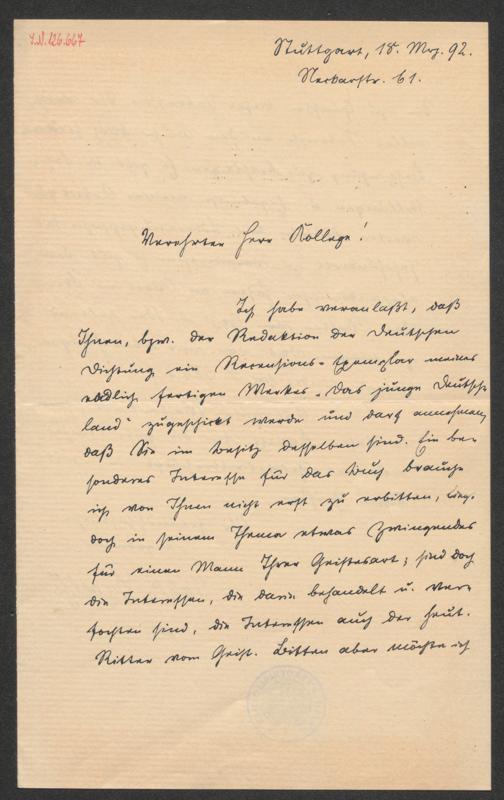 I.N. 126.667
Stuttgart, 18. Mrz. 92.
Neckarstr. 61.
Verehrter Herr Kollege!
Ich habe veranlaßt, daß
Ihnen, bzw. der Redaktion der Deutschen
Dichtung ein Recensions-Exemplar meines
endlich fertigen Werkes „Das junge Deutsch-
land“ zugeschickt werde und darf annehmen,
daß Sie im Besitz desselben sind. Ein be-
sonderes Interesse für das Buch brauche
ich von Ihnen nicht erst zu erbitten, liegt
doch in seinem Thema etwas Zwingendes
für einen Mann Ihrer Geistesart; sind doch
die Interessen, die darin behandelt u. ver-
fochten sind, die Interessen auch der heut.
Ritter vom Geist. Bitten aber möchte ich